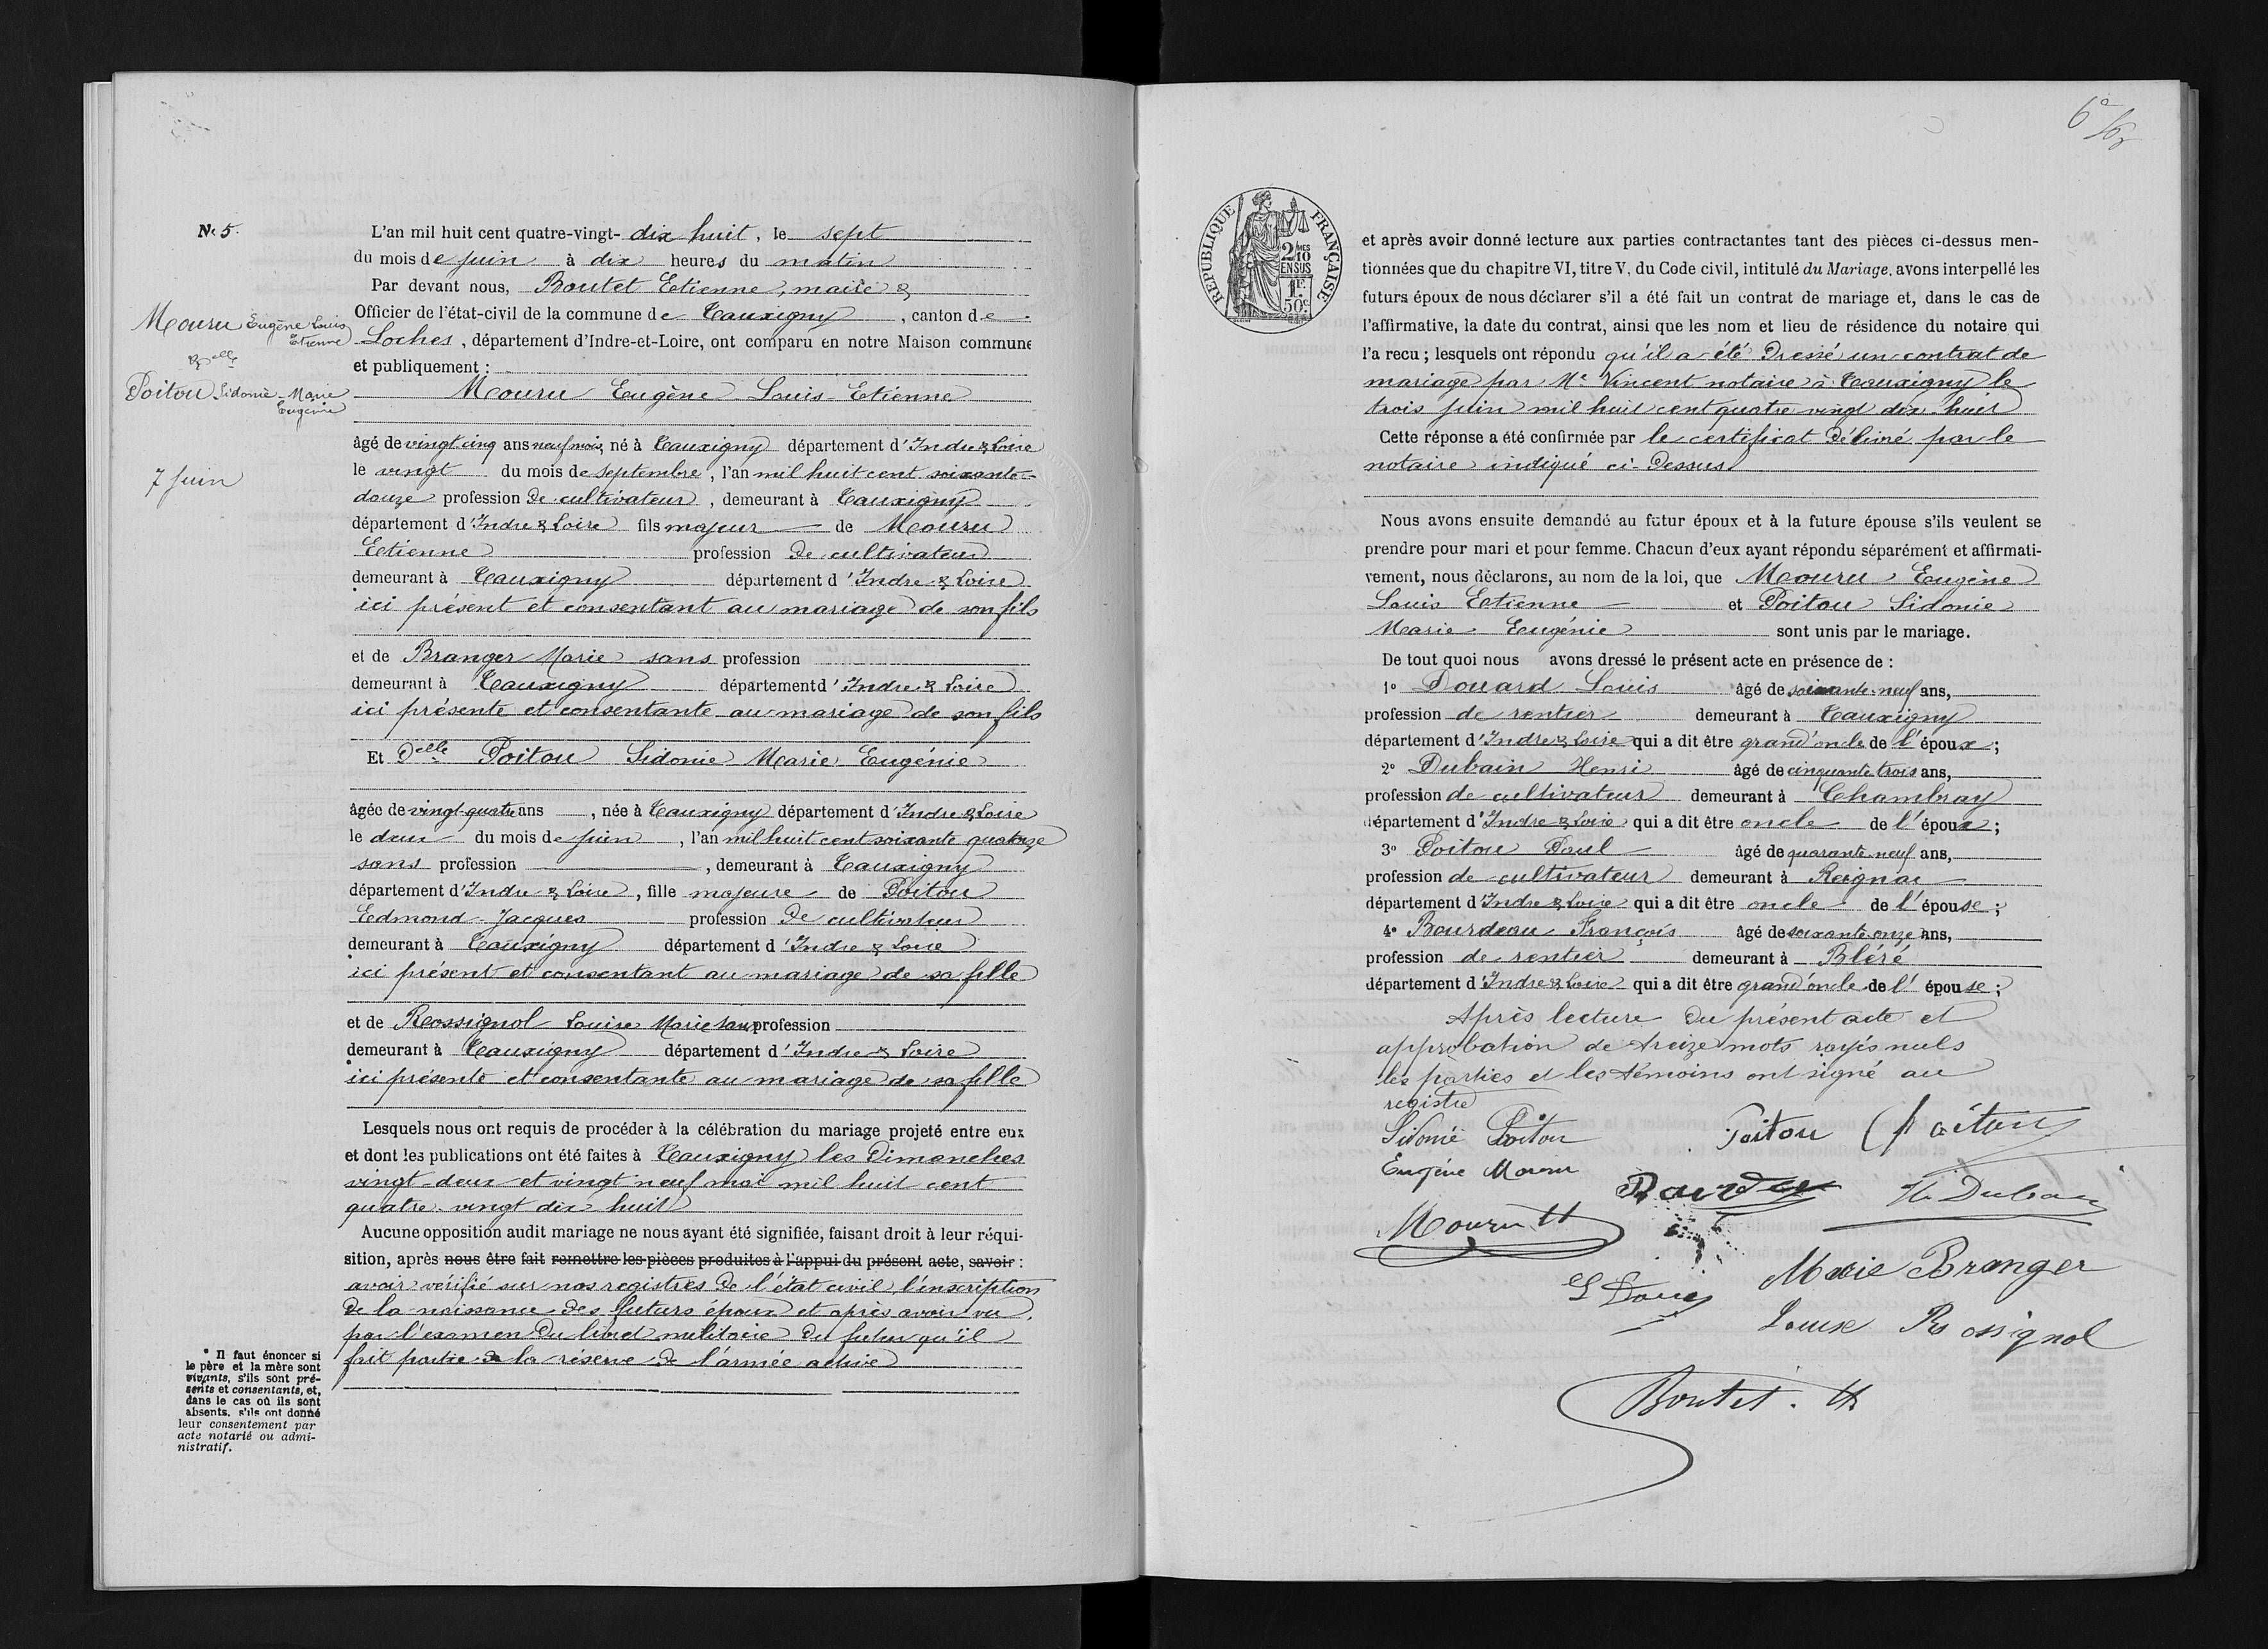 N° 5.
Mouru Eugène Louis
Etienne
& Delle
Poitou Sidonie-Marie
Eugénie
7 juin
L'an mil huit cent quatre-vingt-dix huit, le sept
du mois de juin à dix heures du matin
Par devant nous, Boutet Etienne, maire &
Officier de l'état-civil de la commune de Tauxigny, canton de
Loches, département d'Indre-et-Loire, ont comparu en notre Maison commune
et publiquement :
Mouru Eugène Louis-Etienne
âgé de vingt cinq ans neuf mois, né à Tauxigny département d'Indre & Loire
le vingt du mois de septembre, l'an mil huit cent soixante-
douze profession de cultivateur, demeurant à Tauxigny
département d'Indre & Loire fils majeur de Mouru
Etienne profession de cultivateur
demeurant à Tauxigny département d'Indre & Loire
ici présent et consentant au mariage de son fils
et de Branger Marie sans profession
demeurant à Tauxigny département d'Indre & Loire
ici présente et consentante au mariage de son fils
Et Delle Poitou Sidonie Marie Eugénie
âgée de vingt-quatre ans, née à Tauxigny département d'Indre & Loire
le deux du mois de juin, l'an mil huit cent soixante quatorze
sans profession, demeurant à Tauxigny
département d'Indre & Loire, fille majeure de Poitou
Edmond-Jacques profession de cultivateur
demeurant à Tauxigny département d'Indre & Loire
ici présent et consentant au mariage de sa fille
et de Rossignol Louise Marie sans profession
demeurant à Tauxigny département d'Indre & Loire
ici présente et consentante au mariage de sa fille
Lesquels nous ont requis de procéder à la célébration du mariage projeté entre eux
et dont les publications ont été faites à Tauxigny les Dimanches
vingt-deux et vingt neuf mai mil huit cent
quatre-vingt dix huit
Aucune opposition audit mariage ne nous ayant été signifiée, faisant droit à leur réqui-
sition, après nous être fait remettre les pièces produites à l'appui du présent acte, savoir :
avoir vérifié sur nos registres de l'état civil, l'inscription
de la naissance des futurs époux et après avoir vu
par l'examen du livret militaire du futur qu'il
fait partie de la réserve de l'armée active
* Il faut énoncer si
le père et la mère sont
vivants, s'ils sont pré-
sents et consentants, et,
dans le cas où ils sont
absents, s'ils ont donné
leur consentement par
acte notarié ou admi-
nistratif.
RÉPUBLIQUE FRANÇAISE
2/10 MES
EN SUS
1F.
50c.
et après avoir donné lecture aux parties contractantes tant des pièces ci-dessus men-
tionnées que du chapitre VI, titre V, du Code civil, intitulé du Mariage, avons interpellé les
futurs époux de nous déclarer s'il a été fait un contrat de mariage et, dans le cas de
l'affirmative, la date du contrat, ainsi que les nom et lieu de résidence du notaire qui
l'a recu ; lesquels ont répondu qu'il a été dressé un contrat de
mariage par Me Vincent notaire à Tauxigny le
trois juin mil huit cent quatre vingt dix-huit
Cette réponse a été confirmée par le certificat délivré par le
notaire indiqué ci-dessus
Nous avons ensuite demandé au futur époux et à la future épouse s'ils veulent se
prendre pour mari et pour femme. Chacun d'eux ayant répondu séparément et affirmati-
vement, nous déclarons, au nom de la loi, que Mouru Eugène
Louis Etienne et Poitou Sidonie
Marie Eugénie sont unis par le mariage.
De tout quoi nous avons dressé le présent acte en présence de :
1° Douard Louis âgé de soixante-neuf ans,
profession de rentier demeurant à Tauxigny
département d'Indre & Loire qui a dit être grand'oncle de l'époux ;
2° Dubain Henri âgé de cinquante-trois ans,
profession de cultivateur demeurant à Chambray
département d'Indre & Loire qui a dit être oncle de l'époux ;
3° Poitou Paul âgé de quarante-neuf ans,
profession de cultivateur demeurant à Reignac
département d'Indre & Loire qui a dit être oncle de l'épouse ;
4° Bourdeau François âgé de soixante-onze ans,
profession de rentier demeurant à Bléré
département d'Indre & Loire qui a dit être grand'oncle de l'épouse ;
Après lecture du présent acte et
approbation de treize mots rayés nuls
les parties et les témoins ont signé au
registre
Sidonie Poitou Poitou Poitou
Eugène Mouru
Mouru H. Dubain
Marie Branger
Louise Rossignol
Boutet